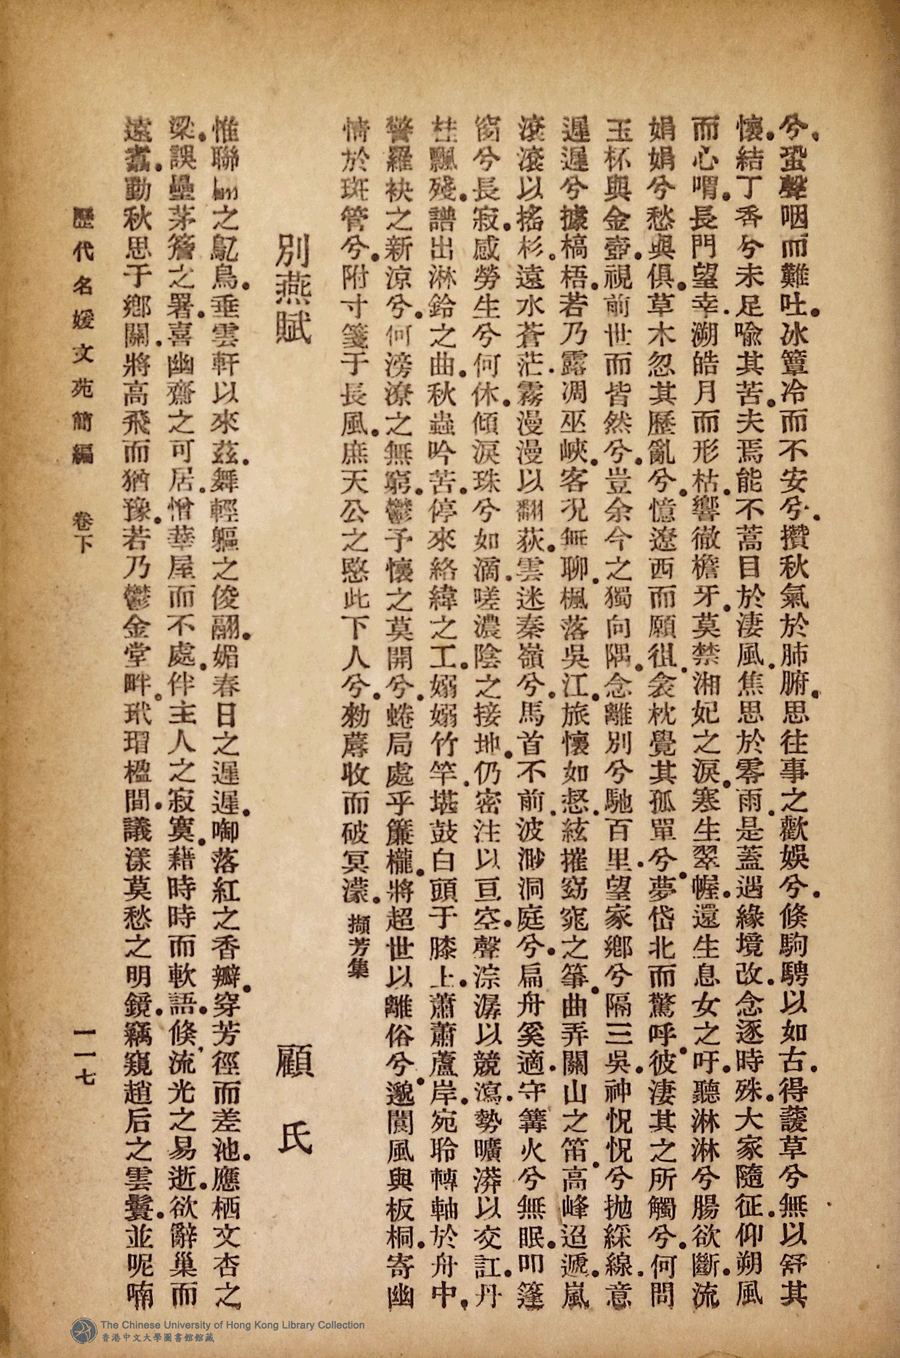 兮、蛩聲咽而難吐。冰簟冷而不安兮、攢秋氣於肺腑。思往事之歡娛兮、倏駒騁以如古。得諼草兮無以舒其
懷。結丁香兮未足喻其苦。夫焉能不蒿目於淒風。焦思於零雨。是蓋遇緣境改。念逐時殊。大家隨征。仰朔風
而心喟。長門望幸。溯皓月而形枯。響徹檐牙。莫禁湘妃之淚。寒生翠幄。還生息女之吁。聽淋淋兮腸欲斷。流
娟娟兮愁與俱。草木忽其歷亂兮。憶遼西而願徂。衾枕覺其孤單兮。夢岱北而驚呼。彼淒其之所觸兮。何問
玉杯與金壺。視前世而皆然兮。豈余今之獨向隅。念離別兮馳百里。望家鄉兮隔三吳。神怳怳兮拋綵線。意
遲遲兮據槁梧。若乃露凋巫峽。客況無聊。楓落吳江。旅懷如惄。絃摧窈窕之箏。曲弄關山之笛。高峰迢遞。嵐
滾滾以搖杉。遠水蒼茫。霧漫漫以翻荻。雲迷秦嶺兮。馬首不前。波渺洞庭兮。扁舟奚適。守篝火兮無眠。叩篷
窗兮長寂。感勞生兮何休。傾淚珠兮如滴。嗟濃陰之接地。仍密注以亘空。聲淙潺以競瀉。勢曠漭以交訌。丹
桂飄殘。譜出淋鈴之曲。秋蟲吟苦。停來絡緯之工。嫋嫋竹竿。堪鼓白頭于膝上。蕭蕭蘆岸。宛聆轉軸於舟中。
警羅袂之新涼兮。何滂潦之無窮。鬱予懷之莫開兮。蜷局處乎簾櫳。將超世以離俗兮。邈閬風與板桐。寄幽
情於斑管兮。附寸箋于長風。庶天公之愍此下人兮。勑蓐收而破冥濛。 擷芳集
別燕賦 顧氏
惟聯之鳦鳥。垂雲軒以來茲。舞輕軀之俊翮。媚春日之遲遲。啣落紅之香瓣。穿芳徑而差池。應栖文杏之
梁。誤壘茅簷之署。喜幽齋之可居。憎華屋而不處。伴主人之寂寞。藉時時而軟語。倏流光之易逝。欲辭巢而
遠翥。勤秋思于鄉關。將高飛而猶豫。若乃鬱金堂畔。玳瑁楹間。議漾莫愁之明鏡。竊窺趙后之雲鬟。並呢喃
歷代名媛文苑簡編 卷下 一一七
The Chinese University of Hong Kong Library Collection
香港中文大學圖書館館藏